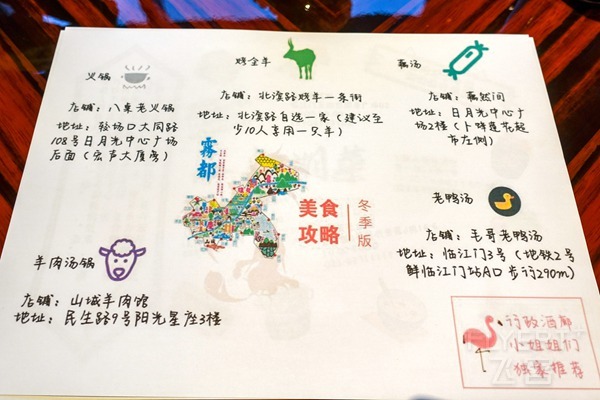 火锅
店铺：八东老火锅
地址：较场口大同路
108号日月光中心广场
后面（宏声大厦旁）
烤全羊
店铺：北滨路烤羊一条街
地址：北滨路自选一家（建议至
少10人享用一只羊）
藕汤
店铺：藕然间
地址：日月光中心广
场2楼（卜蜂莲花超
市左侧）
雾都
美食
攻略
冬季版
老鸭汤
店铺：毛哥老鸭汤
地址：临江门3号（地铁2号
鲜临江门站A口 步行290m）
羊肉汤锅
店铺：山城羊肉馆
地址：民生路9号阳光星座3楼
行政酒廊
小姐姐们
独家推荐